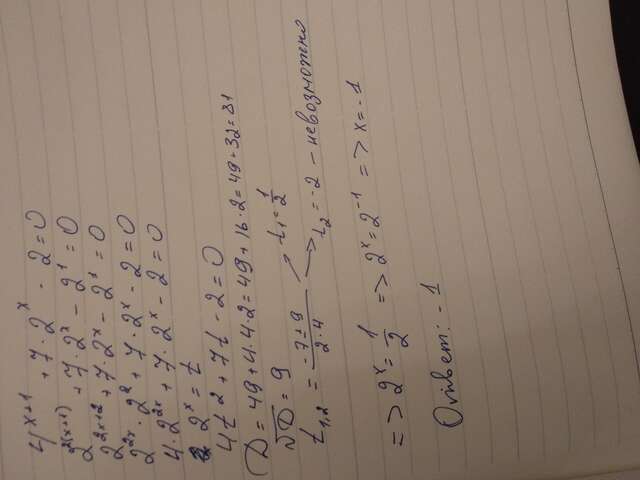 4^{x+1} + 7·2^x - 2 = 0
2^{2(x+1)} + 7·2^x - 2^1 = 0
2^{2x+2} + 7·2^x - 2^1 = 0
2^{2x}·2^2 + 7·2^x - 2 = 0
4·2^{2x} + 7·2^x - 2 = 0
2^x = t
4t^2 + 7t - 2 = 0
D = 49 + 4·4·2 = 49 + 16·2 = 49 + 32 = 81
√D = 9
t_{1,2} = (-7 ± 9)/(2·4) ↗ t_1 = 1/2
→ t_2 = -2 - невозможно
=> 2^x = 1/2 => 2^x = 2^{-1} => x = -1
Ответ: -1